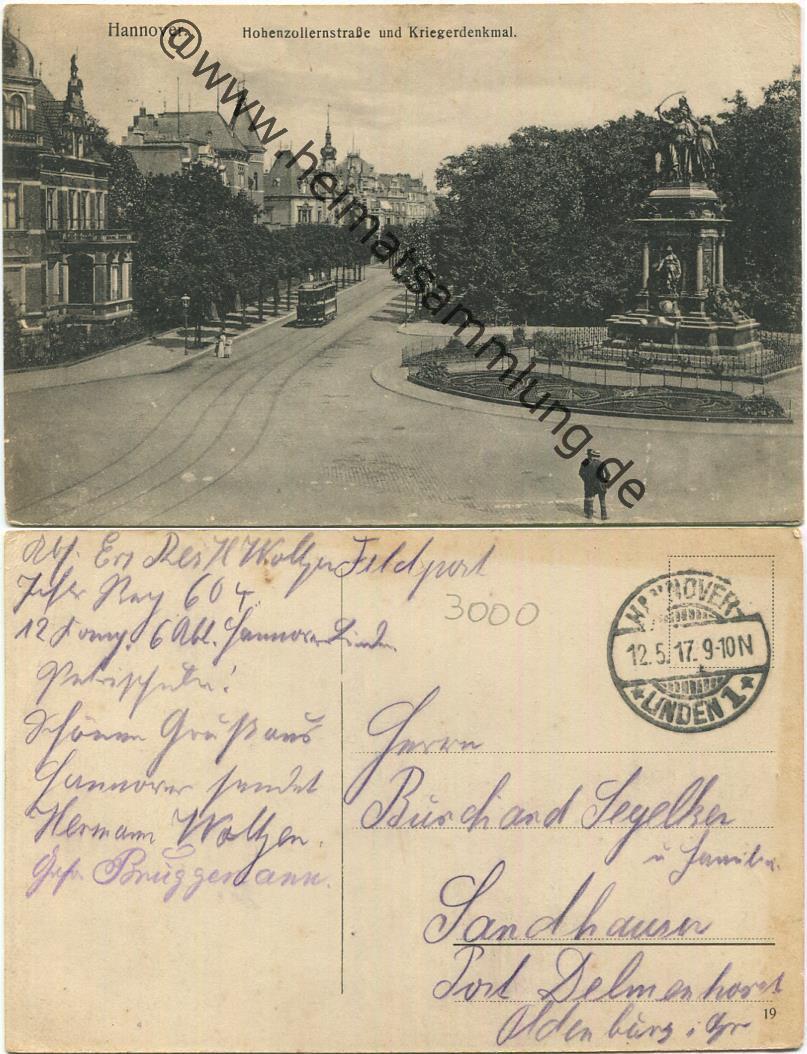 Hannover.
Hohenzollernstraße und Kriegerdenkmal.
@www.heimatsammlung.de
Abs. Ers Res H Woltzen Feldpost
Inftr Reg 604
12 Komp. 6 Abl. Hannover Linden
3000
Schönen Gruß aus
Hannover sendet
Hermann Woltzen.
Bruggemann.
HANNOVER-
12.5.17. 9-10N
*LINDEN 1*
Herrn
Burchard Segelken
u Familie.
Sandhausen
Post Delmenhorst
19
Oldenburg i. Gr